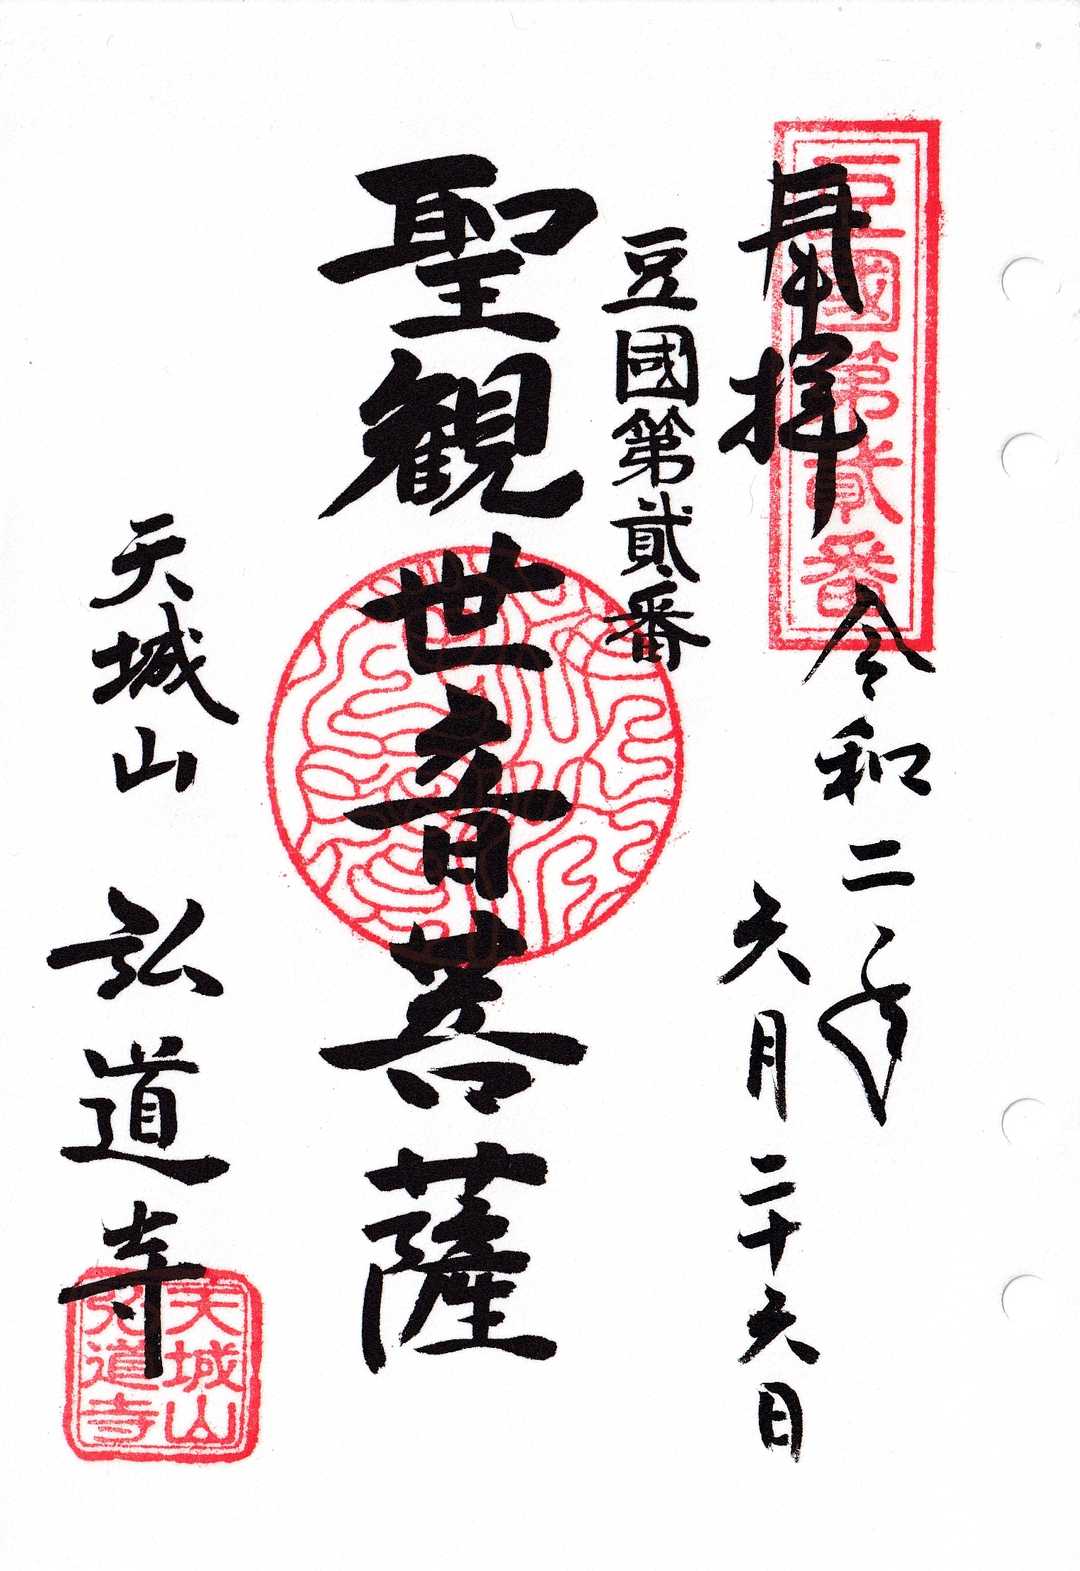 豆國第貳番
奉拝
令和二年
六月二十六日
豆國第貳番
聖観世音菩薩
天城山
弘道寺
天城山
弘道寺